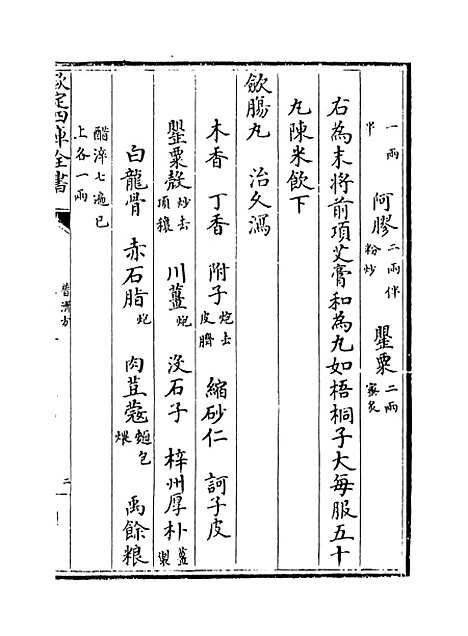 一兩 阿膠二兩伴粉炒 罌粟二兩蜜炙
右為末將前項艾膏和為丸如梧桐子大每服五十
丸陳米飲下
斂腸丸 治久瀉
木香 丁香 附子炮去皮臍 縮砂仁 訶子皮
罌粟殼炒去項穰 川薑炮 沒石子 梓州厚朴薑製
白龍骨 赤石脂炮 肉荳蔻麵包煨 禹餘粮
醋淬七遍已上各一兩
欽定四庫全書
普濟方